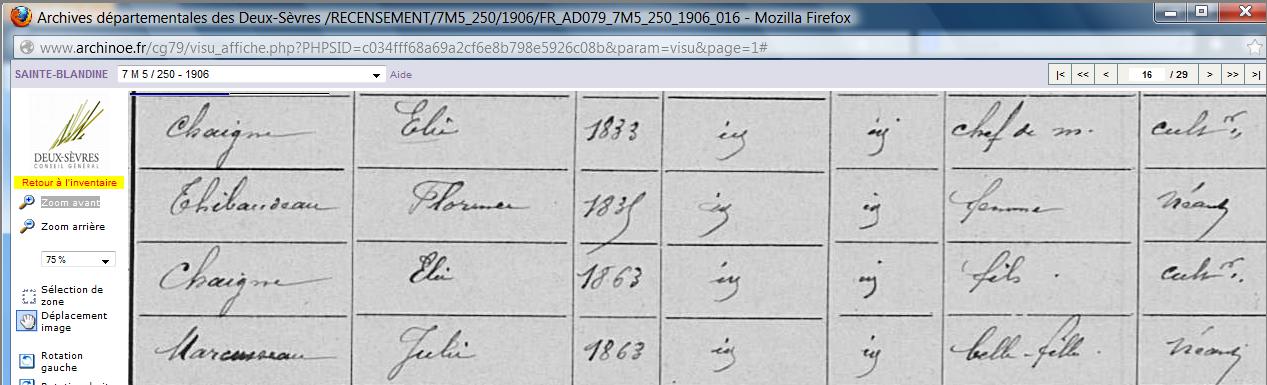 Archives départementales des Deux-Sèvres /RECENSEMENT/7M5_250/1906/FR_AD079_7M5_250_1906_016 - Mozilla Firefox
www.archinoe.fr/cg79/visu_affiche.php?PHPSID=c034fff68a69a2cf6e8b798e5926c08b&param=visu&page=1#
SAINTE-BLANDINE 7 M 5 / 250 - 1906 Aide |< << < 16 / 29 > >> >|
DEUX-SÈVRES
CONSEIL GÉNÉRAL
Retour à l'inventaire
Zoom avant
Zoom arrière
75 %
Sélection de
zone
Déplacement
image
Rotation
gauche
Chaigne Elie 1833 ig ig chef de m. cultr.
Thibaudeau Florence 1835 ig ig femme Néant
Chaigne Elie 1863 ig ig fils . cultr.
Marcusseau Julie 1863 ig ig belle-fille . Néant